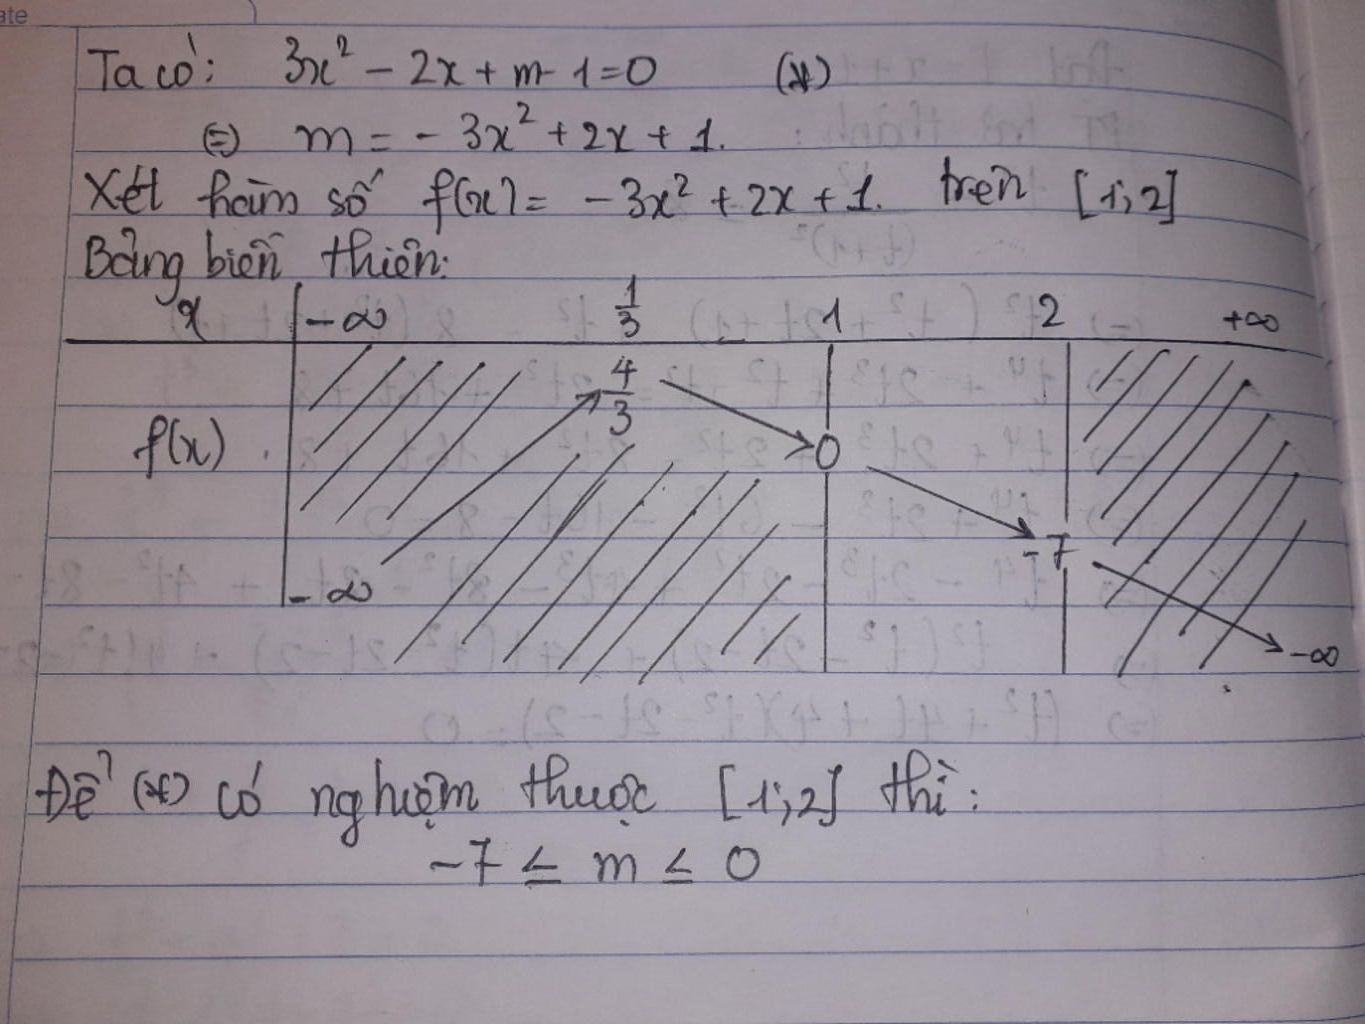 ate
Ta có: 3x² - 2x + m - 1 = 0 (*)
⇔ m = - 3x² + 2x + 1.
Xét hàm số f(x) = - 3x² + 2x + 1. trên [1;2]
Bảng biến thiên:
x -∞ 1/3 1 2 +∞
f(x) -∞ 4/3 0 -7 -∞
Để (*) có nghiệm thuộc [1;2] thì:
-7 ≤ m ≤ 0